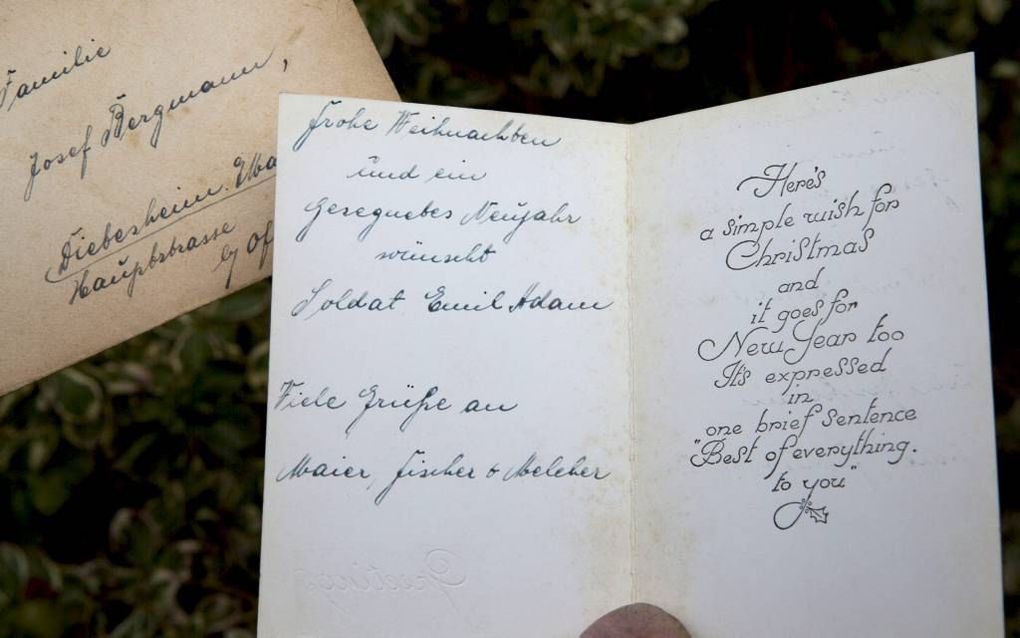 Familie
Josef Bergmann,
Diebesheim
Hauptstrasse
Frohe Weihnachten
und ein
Gesegnetes Neujahr
wünscht
Soldat Emil Adam
Viele Grüße an
Maier, Fischer & Melcher
Greetings
Here's
a simple wish for
Christmas
and
it goes for
New Year too
It's expressed
in
one brief sentence
"Best of everything.
to you"